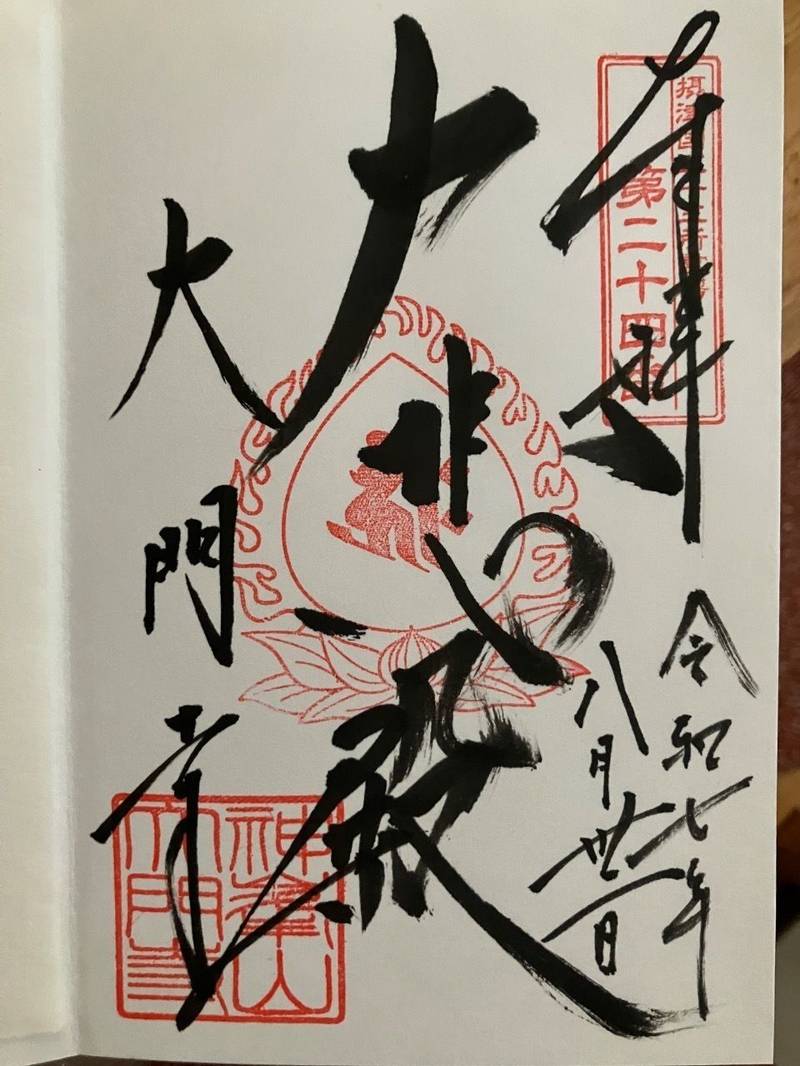 奉拝
摂津国
第二十四番
令和七年
八月卅一日
大悲殿
大門寺
神峯山
大門寺